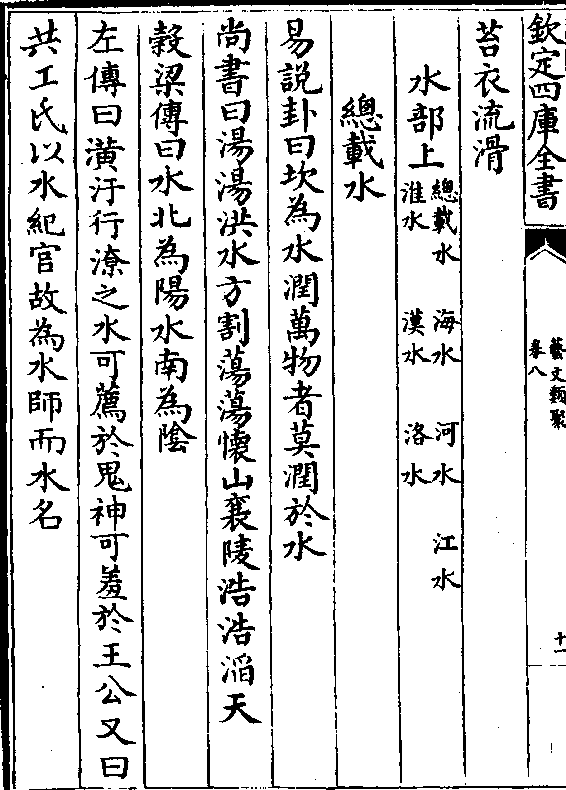 欽定四庫全書
藝文類聚
卷八
十一
苔衣流滑
水部上
總載水 海水 河水 江水
淮水 漢水 洛水
總載水
易說卦曰坎為水潤萬物者莫潤於水
尚書曰湯湯洪水方割蕩蕩懷山襄陵浩浩滔天
穀梁傳曰水北為陽水南為陰
左傳曰潢汙行潦之水可薦於鬼神可羞於王公又曰
共工氏以水紀官故為水師而水名